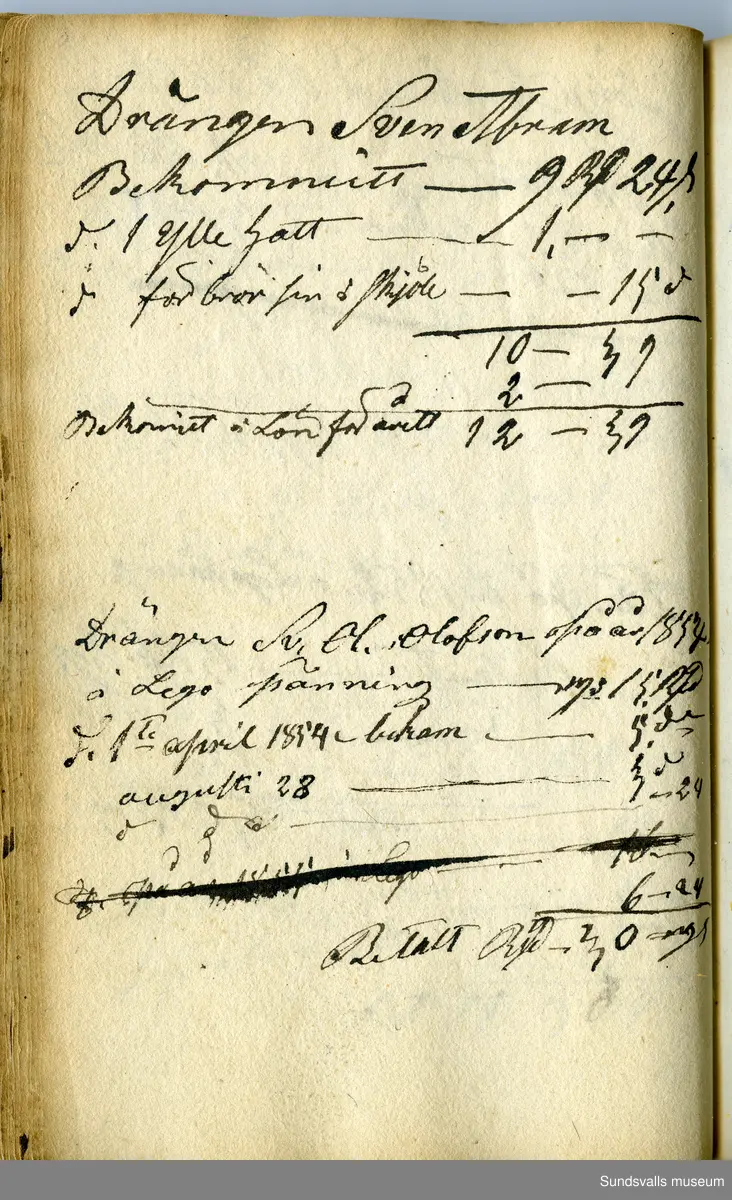 Drängen Sven Abram
Bekommitt — 9 Rd 24 s
d. 1 ylle hatt — 1, — —
d för bror sin i — — 15 d
10 — 39
2 —
Bekomit i Lön för året 12 — 39
Drängen Sv. Ol. Olofson på år 1854
i Lego pänning — rgs 15 Rd
d. 1te april 1854 bekam — 5. do
augusti 28 — 3 d
d d — 1 — 24
på år i Lego
6 — 24
Betalt Rd — 30 — rgs
Sundsvalls museum